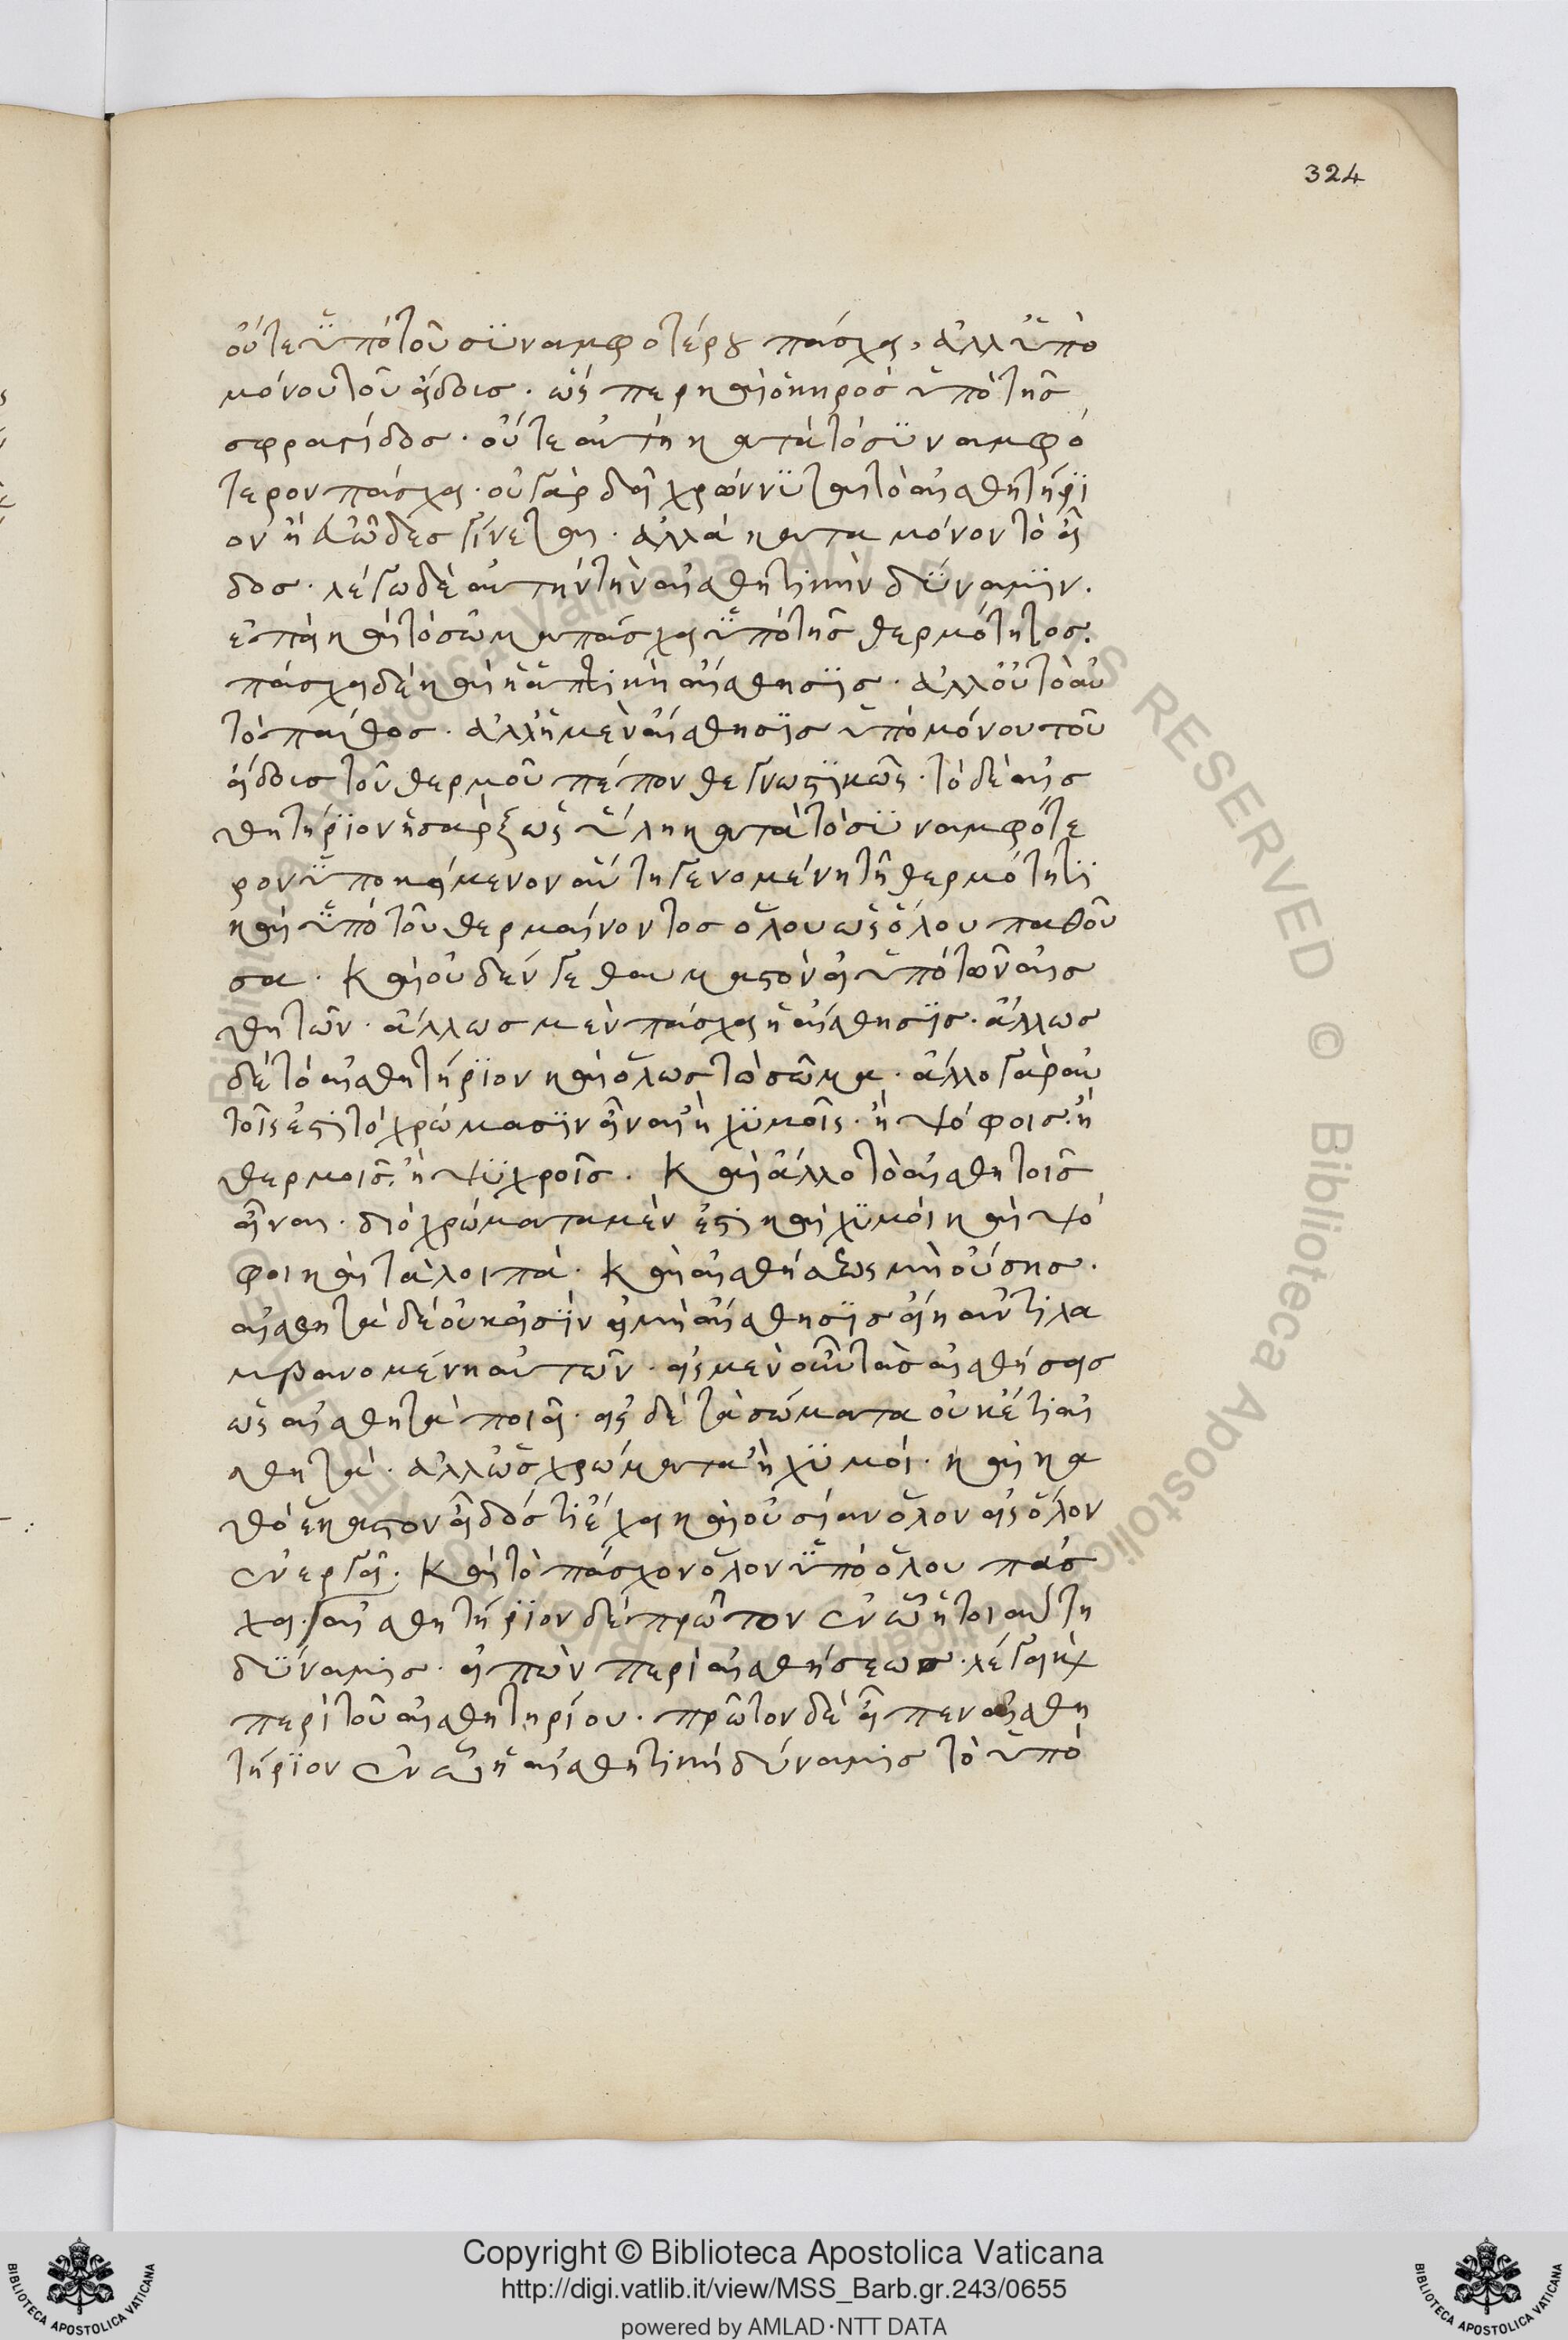 324
οὔτε ὑπὸ τοῦ συναμφοτέρου πάσχει, ἀλλ ὑπὸ
μόνου τοῦ εἴδους. ὥς περ καὶ ὁ κηρὸς ὑπὸ τῆς
σφραγίδος. οὔτε αὐτὴ κατὰ τὸ συναμφό
τερον πάσχει. οὐ γὰρ δὴ χρώννυται τὸ αἰσθητήρι
ον ἢ εὐῶδες γίνεται. ἀλλὰ κατα μόνον τὸ εἶ
δος. λέγω δὲ αὐτὴν τὴν αἰσθητικὴν δύναμιν.
ἐπεὶ καὶ τὸ σῶμα πάσχει ὑπὸ τῆς θερμότητος.
πάσχει δὲ καὶ ἡ ἁπτικὴ αἴσθησις. ἀλλ οὐ τὸ αὐ
τὸ πάθος. ἀλλ ἡ μὲν αἴσθησις ὑπὸ μόνου τοῦ
εἴδους τοῦ θερμοῦ πέπονθε γνωστικῶς. τὸ δὲ αἰσ
θητήριον ἡ σαρξ ὡς ὕλη κατὰ τὸ συναμφότε
ρον ὑποκείμενον αὕτη γενομένη τῆ θερμότητι
καὶ ὑπὸ τοῦ θερμαίνοντος ὅλου ὡς ὅλου παθοῦ
σα. Καὶ οὐδέν γε θαυμαστὸν εἰ ὑπὸ τῶν αἰσ
θητῶν. ἄλλως μὲν πάσχει ἡ αἴσθησις. ἄλλως
δὲ τὸ αἰσθητήριον καὶ ὅλως τὸ σῶμα. ἄλλο γὰρ αὐ
τοῖς ἐστὶ τὸ χρώμασιν εἶναι ἢ χυμοῖς. ἢ ψόφοις. ἢ
θερμοῖς. ἢ ψυχροῖς. Καὶ ἄλλο τὸ αἰσθητοῖς
εἶναι. διὸ χρώματα μὲν ἐστὶ καὶ χυμοὶ καὶ ψό
φοι καὶ τὰ λοιπά. Καὶ αἰσθήσεως μὴ οὔσης.
αἰσθητὰ δὲ οὐκ εἰσὶν εἰ μὴ αἴσθησις εἴη ἀντιλα
μβανομένη αὐτῶν. εἰς μὲν οὖν τὰς αἰσθήσεις
ὡς αἰσθητὰ ποιεῖ. εἰς δὲ τὰ σώματα οὐκέτι αἰσ
θητὰ. ἀλλ ὡς χρώματα ἢ χυμοί. καὶ κα
θὸ ἕκαστον εἶδός τι ἔχει καὶ οὐσίαν ὅλον εἰς ὅλον
ἐνεργεῖ. Καὶ τὸ πάσχον ὅλον ὑπὸ ὅλου πάσ
χει. αἰσθητήριον δὲ πρῶτον ἐν ὧ ἡ τοιαύτη
δύναμις. εἰπὼν περὶ αἰσθήσεως. λέγει καὶ
περὶ τοῦ αἰσθητηρίου. πρῶτον δὲ εἶπεν αἰσθη
τήριον ἐν ὧ ἡ αἰσθητικὴ δύναμις τὸ ὑπὸ
Copyright © Biblioteca Apostolica Vaticana
http://digi.vatlib.it/view/MSS_Barb.gr.243/0655
powered by AMLAD·NTT DATA